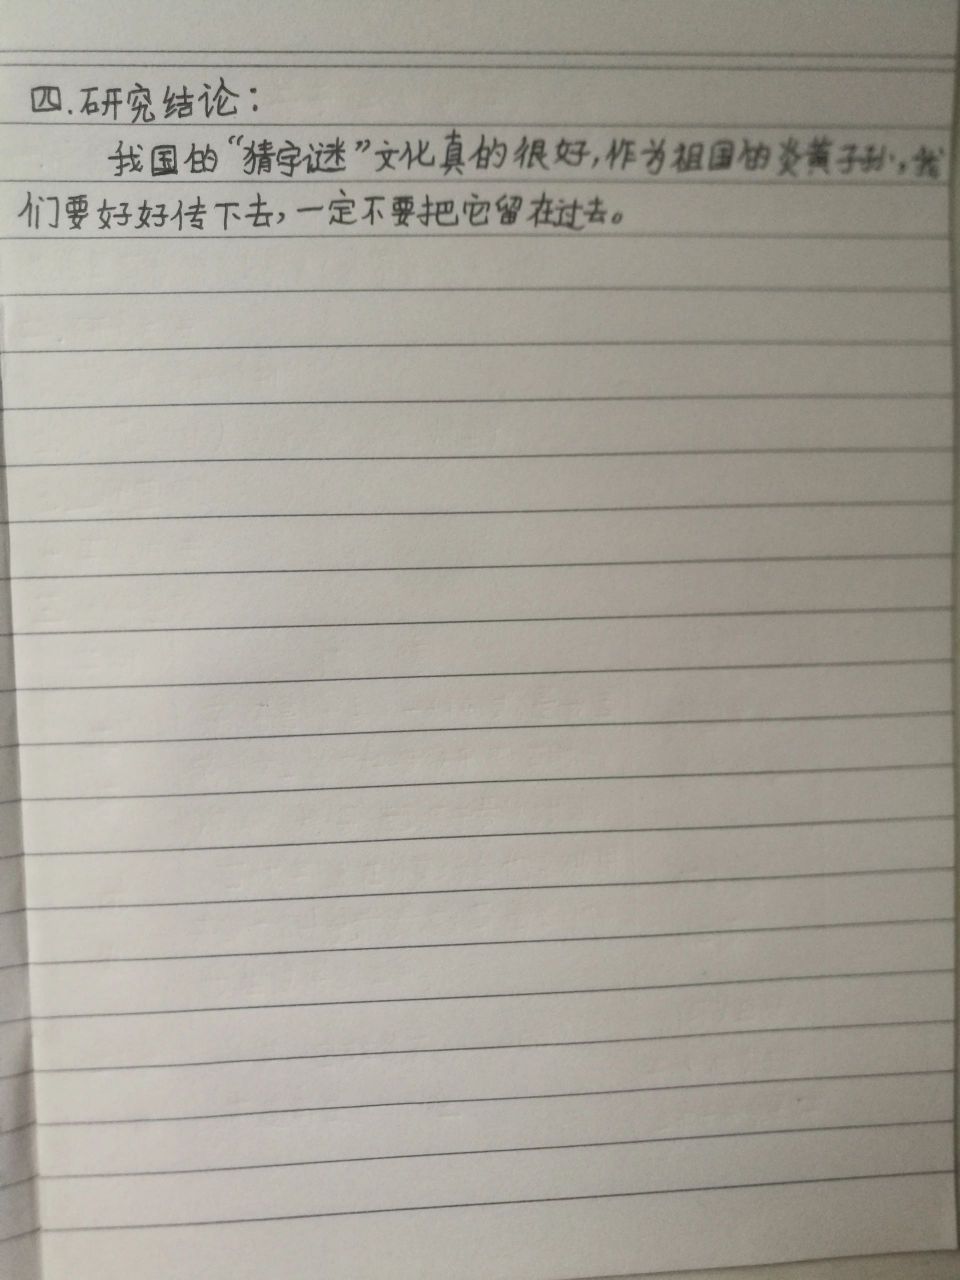 四.研究结论：
我国的“猜字谜”文化真的很好，作为祖国的炎黄子孙，我
们要好好传下去，一定不要把它留在过去。